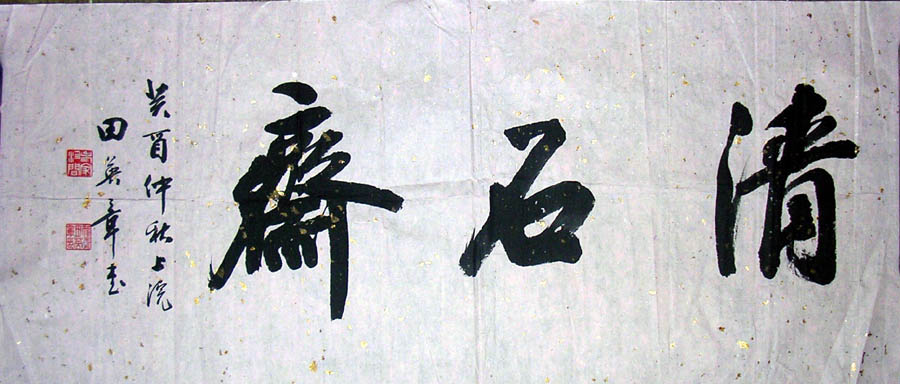 清石齋
癸酉仲秋上浣
田英章書